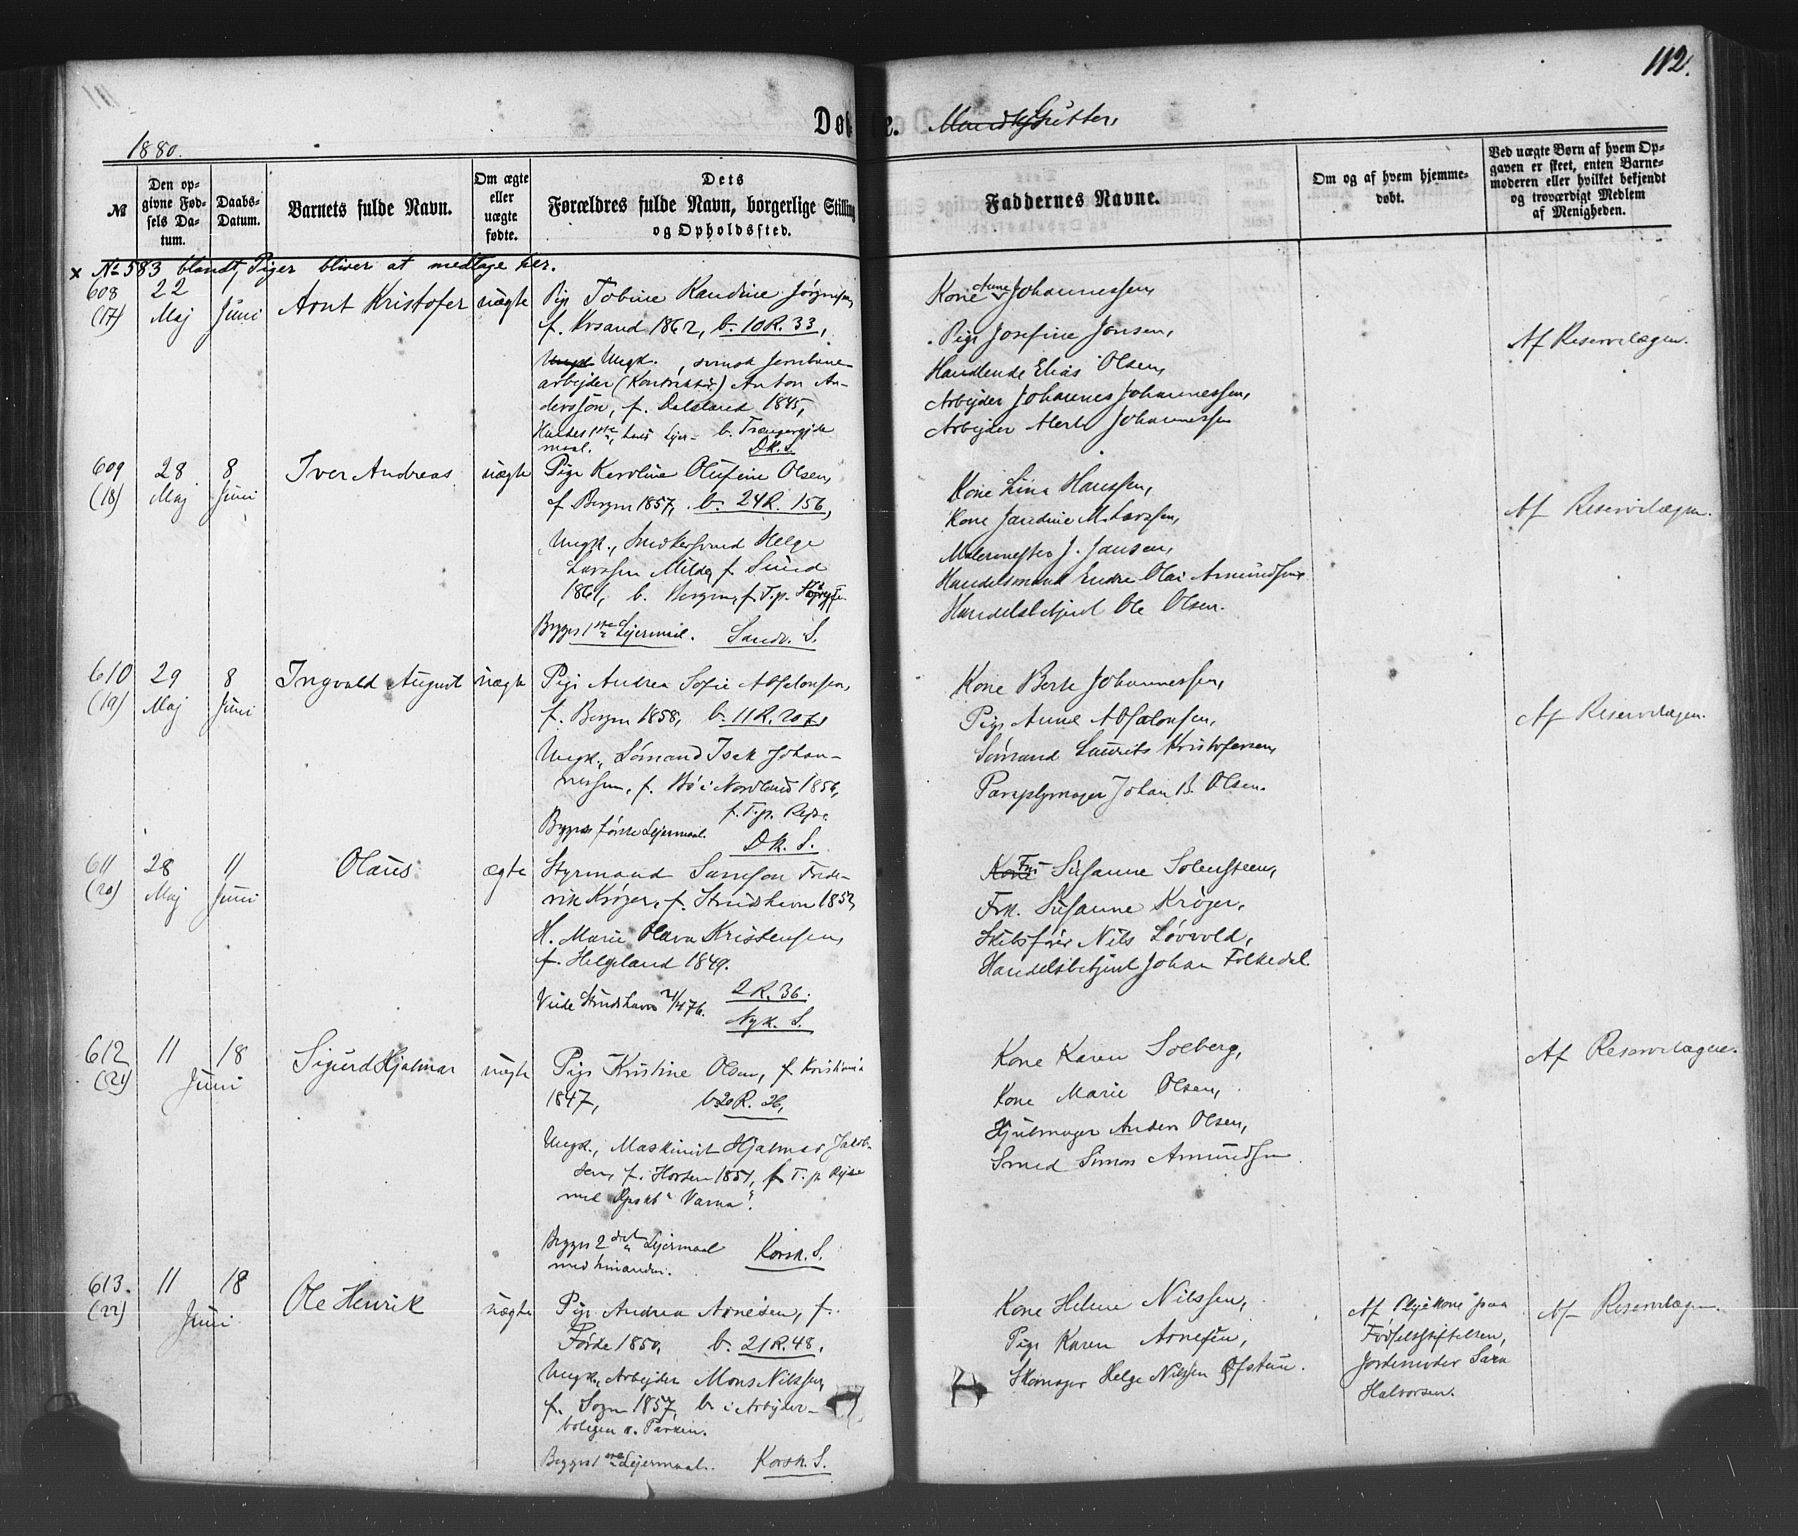 112.
Døbte. Mandkj Gutter,
1880.
№
Den opgivne Fødsels Datum.
Daabs-Datum.
Barnets fulde Navn.
Om ægte eller uægte fødte.
Dets Forældres fulde Navn, borgerlige Stilling og Opholdssted.
Faddernes Navne.
Om og af hvem hjemmedøbt.
Ved uægte Børn af hvem Opgaven er skeet, enten Barnemoderen eller hvilket bekjendt og troværdigt Medlem af Menigheden.
x No 583 blandt Piger bliver at medtage her.
608 (17)
22 Maj
Juni
Arnt Kristofer
uægte
Pige Tobine Randine
f. Krsand 1862, b. 10R. 33,
Ungk., svensk Jernbane-
arbejder Anton An-
dersson, f. Dalsland 1845,
D.K. S.
Kone Anne Johannessen,
Pige Josefine Jonsen,
Handlende Elias Olsen,
Arbejder Johannes Johannessen,
Arbejder Johannessen
Af Reservelægen.
609 (18)
28 Maj
8 Juni
Iver Andreas
uægte
Pige Karoline Olufine Olsen,
f. Bergen 1857, b. 24R. 156,
Ungk., Helge
Larssen Milde, f. Sund
1861, b. Bergen, f. T. p.
Begges 1ste Lejermaal. Sandv. S.
Kone Lina Hanssen,
Kone Jandine M. Larssen,
Malermester J. Jansen,
Handelsmand Endre Olai Amundsen,
Handelsbetjent Ole Olsen.
Af Reservelægen.
610 (19)
29 Maj
8 Juni
Ingvald August
uægte
Pige Andrea Sofie Absalonsen,
f. Bergen 1858, b. 11R.
Ungk., Sømand Isak Johan-
nessen, f. Bø i Nordland 1856,
f. T. p. Rejse
Begges første Lejermaal.
D.K. S.
Kone Berte Johannessen,
Pige Anne Absalonsen,
Sømand Laurits Kristofersen,
Paraplymager Johan B. Olsen.
Af Reservelægen.
611 (20)
28 Maj
11 Juni
Olaus
ægte
Styrmand Samson Frede-
rik Krøger, f. Strudshavn 1852,
H. Marie Olava Kristensen,
f. Helgeland 1849.
Viede Strudshavn
2 R. 36.
Nyk. S.
Kone Fru Susanne Solensteen,
Frk. Susanne Krøger,
Skibsfører Nils Løvvold,
Handelsbetjent Johan Folkedal.
612 (21)
11 18
Juni
Sigurd Hjalmar
uægte
Pige Kristine Olsen, f. Kristiania
1847, b. 20 R. 26,
Ungk., Maskinist Hjalmar Jakob-
sen, f. Horten 1851, f. T. p. Rejse
med "Varna".
Begges 2det Lejermaal
med hinanden.
Korsk. S.
Kone Karen Solberg,
Kone Marie Olsen,
Hjulmager Anders Olsen,
Smed Simon Amundsen
Af Reservelægen.
613. (22)
11 18
Juni
Ole Henrik
uægte
Pige Andrea Arnesen, f.
Førde 1850, b. 21R. 48,
Ungk., Arbejder Mons Nilssen,
f. Sogn 1857, b. i Arbejder-
boligen v. Parken.
Begges 1ste Lejermaal. Korsk. S.
Kone Helene Nilssen,
Pige Karen Arnesen,
Skomager Helge Nilssen
Af Plejekone paa
Fødselsstiftelsen,
Jordemoder Sara
Halvorsen.
Af Reservelægen.